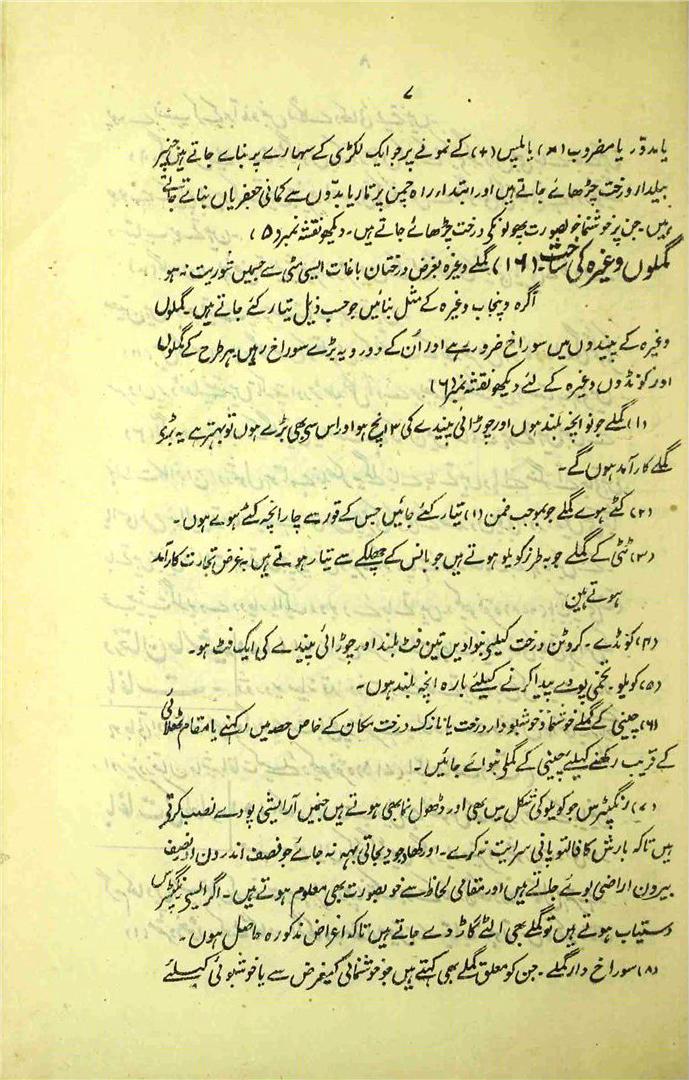 ۷
یا مدوّر یا مضروب (×) یا پلس (+) کے نمونے پر جو ایک لکڑی کے سہارے پر بنائے جاتے ہیں جنپر
بیلدار درخت چڑھائے جاتے ہیں اور ابتداء راہ چمن پر تار یا بدّوں سے کمانی جعفریاں بناتے جاتے
ہیں۔ جن پر خوشنما خوبصورت پھولونکے درخت چڑھائے جاتے ہیں۔ دیکھو نقشہ نمبر (۵)
گملوں وغیرہ کی ساخت۔ (۱۶) گملے وغیرہ بغرض درختان باغات ایسی مٹی سے جسمیں شوریت نہ ہو
آگرہ و پنجاب وغیرہ کے مثل بنائیں جو حسب ذیل تیار کئے جاتے ہیں۔ گملوں
وغیرہ کے پیندوں میں سوراخ ضرور ہے اور اُن کے دو رویہ بڑے سوراخ رہیں ہر طرح کے گملوں
اور کونڈوں وغیرہ کے لئے دیکھو نقشہ نمبر (۶)
(۱) گملے جو نو انچہ بلند ہوں اور چوڑائی پیندے کی ۳ انچ ہو اور اس سی بھی بڑے ہوں تو بہتر ہے یہ بڑی
گملے کارآمد ہوں گے۔
(۲) کٹے ہوے گملے جو بموجب ضمن (۱) تیار کئے جائیں جس کے قور سے چار انچہ کٹے ہوے ہوں۔
(۳) ٹٹی کے گملے جو بہ طرز کویلو ہوتے ہیں جو بانس کے چھلکے سے تیار ہوتے ہیں بہ غرض تجارت کارآمد
ہوتے ہین
(۴) کونڈے۔ کروٹن درخت کیلئی بنوادیں تین فٹ بلند اور چوڑائی پیندے کی ایک فٹ ہو۔
(۵) کویلو۔ تخمی پودے پیدا کرنے کیلئے بارہ انچہ بلند ہوں۔
(۶) چینی کے گملے خوشنما و خوشبودار درخت یا نازک درخت مکان کے خاص حصہ میں رکہنے یا مقام ٹھلائی
کے قریب رکھنے کیلئے چینی کے گملی بنوائے جائیں۔
(۷) رنگپٹرس جو کویلو کی شکل میں بھی اور ڈھول نما بھی ہوتے ہیں جنہیں آرایشی پودے نصب کرتے
ہیں تاکہ بارش کا فالتو پانی سرایت نہ کرے۔ اور کھاد جو دیجاتی بہہ نہ جائے جو نصف اندرون اور نصف
بیرون اراضی بوئے جاتے ہیں اور مقامی لحاظ سے خوبصورت بھی معلوم ہوتے ہیں۔ اگر ایسی رنگپٹرس
دستیاب ہوتے ہیں تو گملے بھی الٹے گاڑ دے جاتے ہیں تاکہ اغراض مذکورہ حاصل ہوں۔
(۸) سوراخ دار گملے۔ جن کو معلق گملے بھی کہتے ہیں جو خوشنمائی کیغرض سے یا خوشبوئی کیلئے